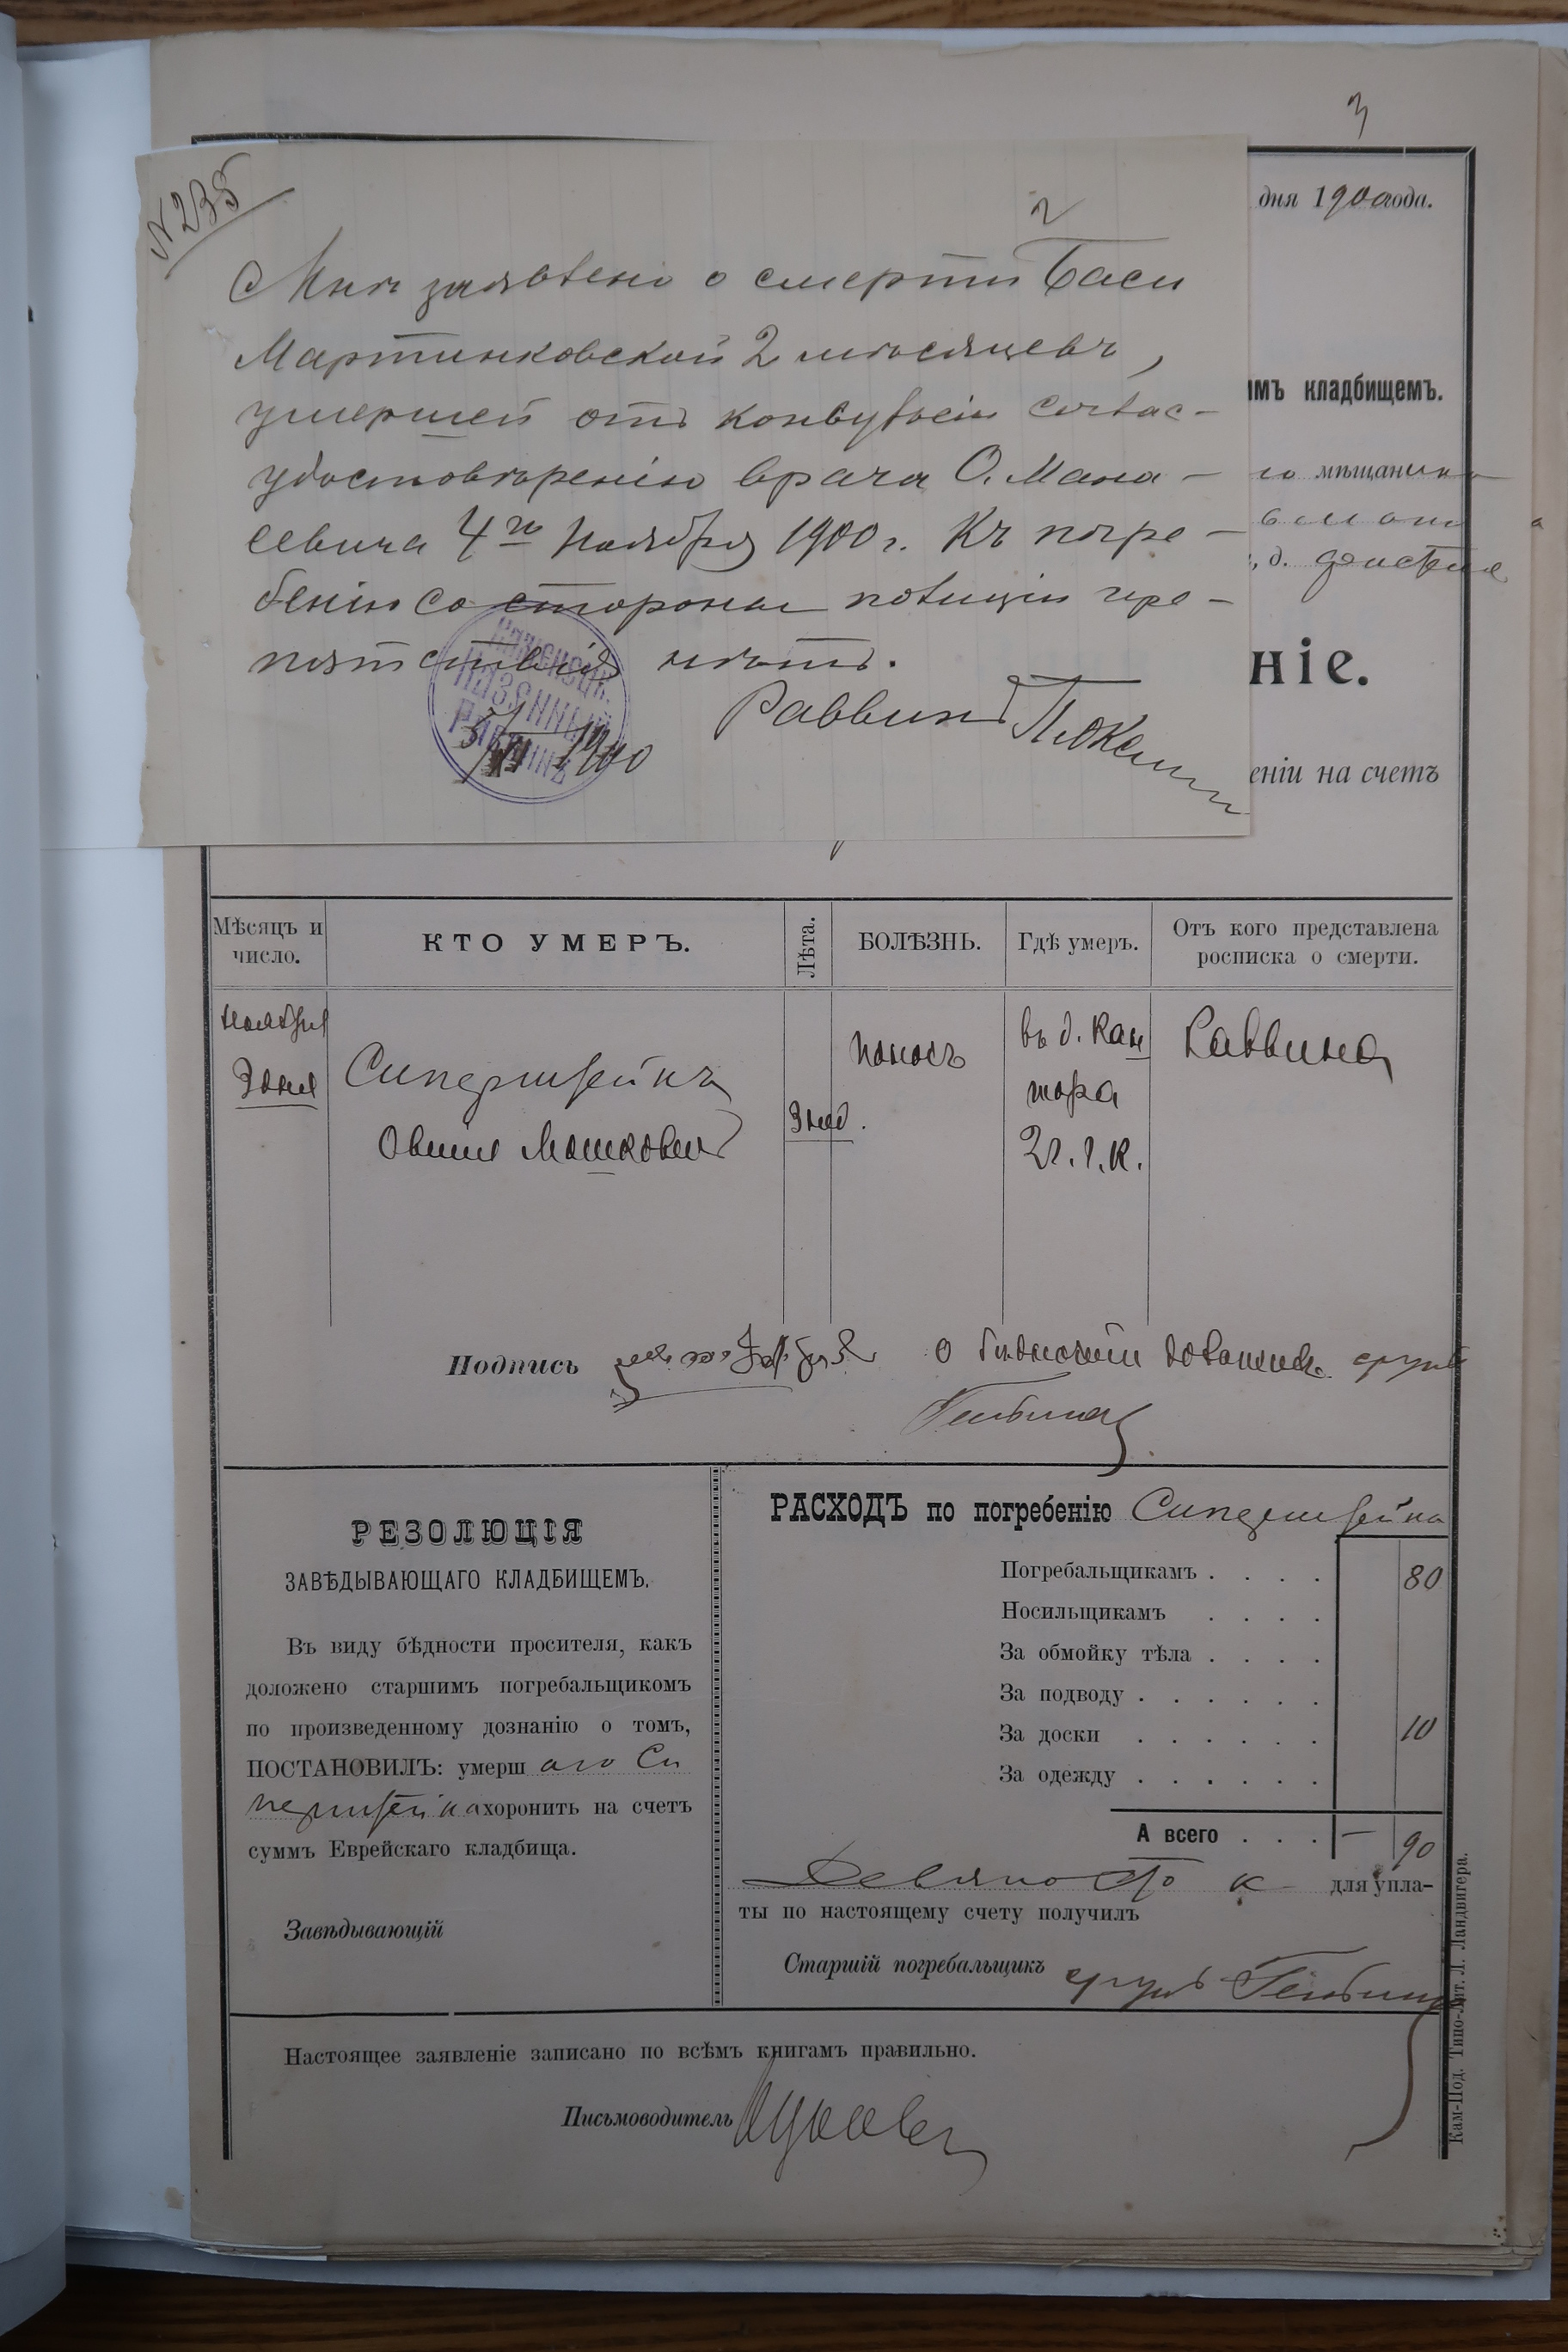 3
N 235
2
Мнѣ заявлено о смерти Баси
Мартинковской 2 мѣсяцевъ,
умершей отъ конвульсіи соглас-
удостовѣренію врача О. Мана-
севича 4го Ноября 1900 г. Къ погре-
бенію со стороны полиціи пре-
пятствія нѣтъ.
Раввинъ
КАЗЕННЫЙ
РАВВИНЪ
5/XI 1900
дня 1900 года.
имъ кладбищемъ.
го мѣщанина
, д.
ніе.
еніи на счетъ
Мѣсяцъ и число.
КТО УМЕРЪ.
Лѣта.
БОЛѢЗНЬ.
Гдѣ умеръ.
Отъ кого представлена росписка о смерти.
Ноября
3 дня
Сиперштейнъ
Овшія Мошковъ
3 нед.
Поносъ
въ д. Кан
тора
2 г. г. К.
Раввина
Подпись
о бѣдности
РЕЗОЛЮЦІЯ
ЗАВѢДЫВАЮЩАГО КЛАДБИЩЕМЪ.
Въ виду бѣдности просителя, какъ
доложено старшимъ погребальщикомъ
по произведенному дознанію о томъ,
ПОСТАНОВИЛЪ: умерш аго Си
перштейна хоронить на счетъ
суммъ Еврейскаго кладбища.
Завѣдывающій
РАСХОДЪ по погребенію Сиперштейна
Погребальщикамъ . . . . 80
Носильщикамъ . . . .
За обмойку тѣла . . . .
За подводу . . . . . .
За доски . . . . . . 10
За одежду . . . . . .
А всего . . . — 90
Девяносто к для упла-
ты по настоящему счету получилъ
Старшій погребальщикъ
Настоящее заявленіе записано по всѣмъ книгамъ правильно.
Письмоводитель
Кам-Под. Типо-Лит. Л. Ландвигера.